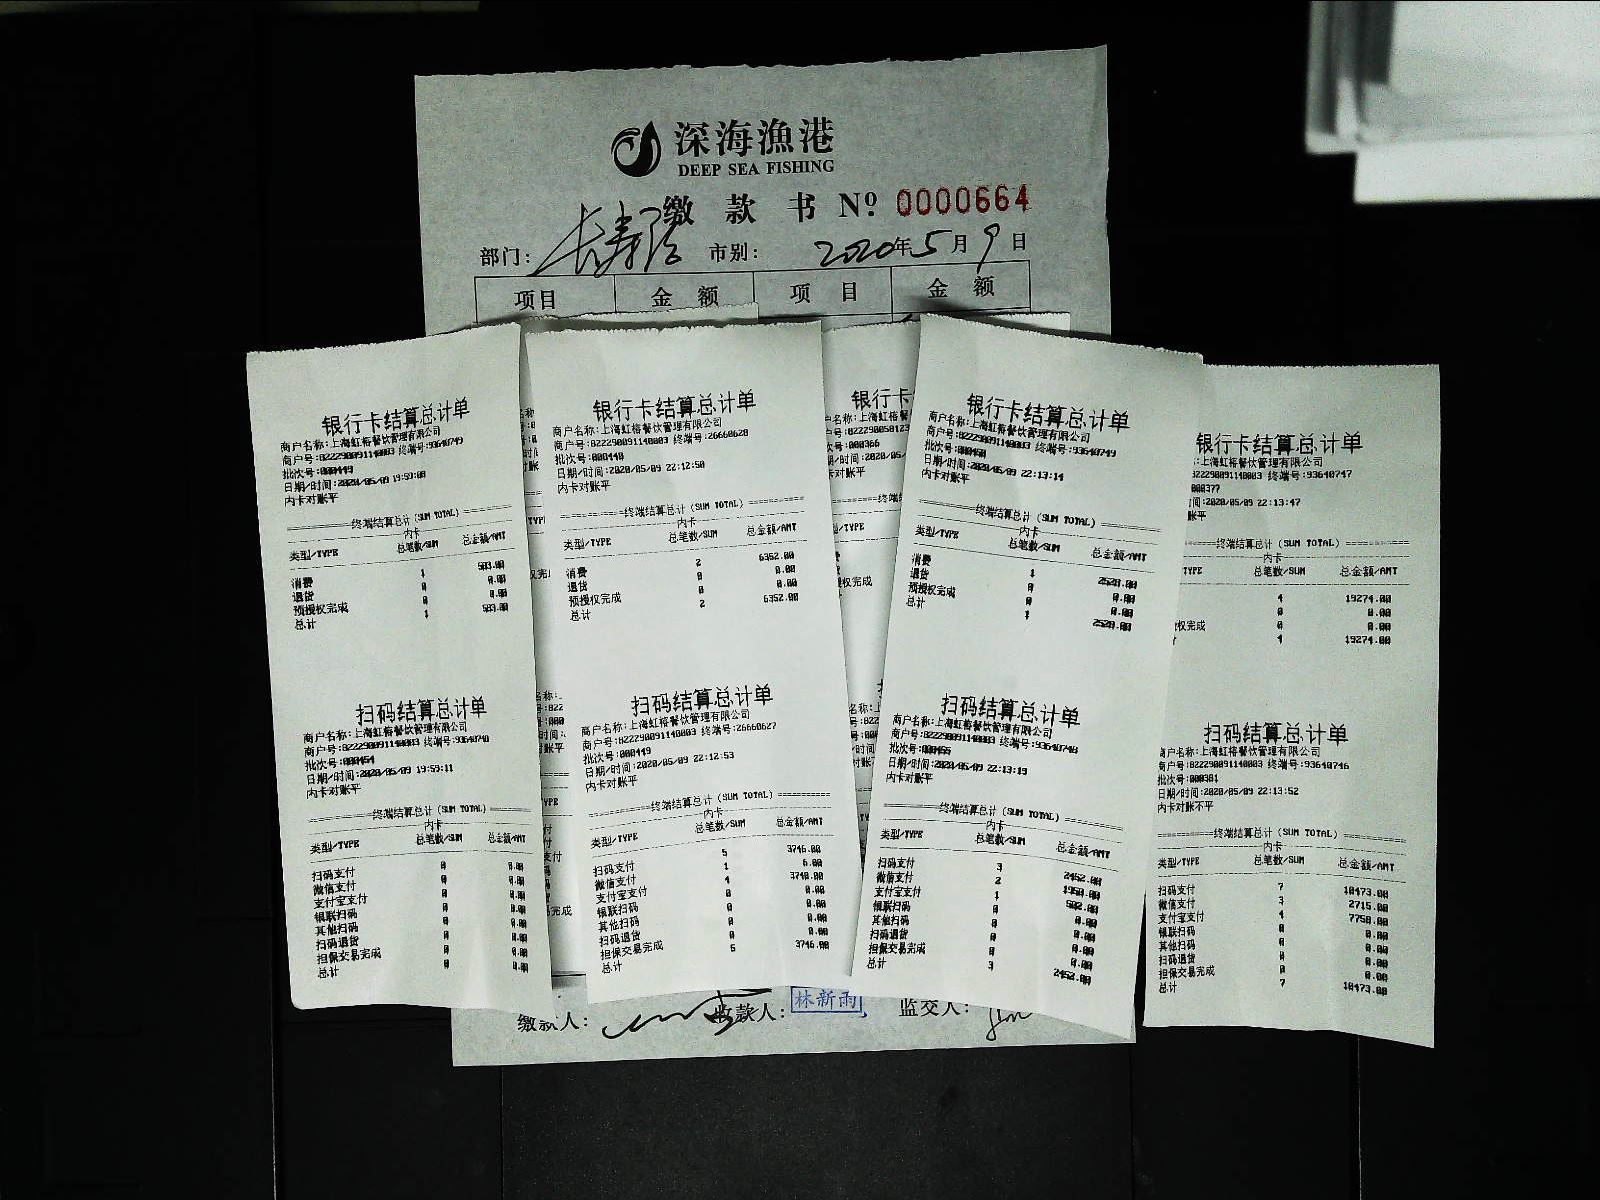 深海漁港
DEEP SEA FISHING
缴 款 书 Nº 0000664
部门: 长寿路 市别: 2020年5月9日
项目 金 额 项 目 金 额
银行卡结算总计单
商户名称:上海虹榕餐饮管理有限公司
商户号:822290091140003 终端号:93640749
批次号:000449
日期/时间:2020/05/09 19:59:08
内卡对账平
终端结算总计(SUM TOTAL)
内卡
类型/TYPE 总笔数/SUM 总金额/AMT
消费 1 503.00
退货 0 0.00
预授权完成 0 0.00
总计 1 503.00
扫码结算总计单
商户名称:上海虹榕餐饮管理有限公司
商户号:822290091140003 终端号:93640748
批次号:000454
日期/时间:2020/05/09 19:59:11
内卡对账平
终端结算总计(SUM TOTAL)
内卡
类型/TYPE 总笔数/SUM 总金额/AMT
扫码支付 0 0.00
微信支付 0 0.00
支付宝支付 0 0.00
银联扫码 0 0.00
其他扫码 0 0.00
扫码退货 0 0.00
担保交易完成 0 0.00
总计 0 0.00
银行卡结算总计单
商户名称:上海虹榕餐饮管理有限公司
商户号:822290091140003 终端号:26660628
批次号:000440
日期/时间:2020/05/09 22:12:50
内卡对账平
终端结算总计(SUM TOTAL)
内卡
类型/TYPE 总笔数/SUM 总金额/AMT
消费 2 6352.00
退货 0 0.00
预授权完成 0 0.00
总计 2 6352.00
扫码结算总计单
商户名称:上海虹榕餐饮管理有限公司
商户号:822290091140003 终端号:26660627
批次号:000449
日期/时间:2020/05/09 22:12:53
内卡对账平
终端结算总计(SUM TOTAL)
内卡
类型/TYPE 总笔数/SUM 总金额/AMT
扫码支付 5 3746.00
微信支付 1 6.00
支付宝支付 4 3740.00
银联扫码 0 0.00
其他扫码 0 0.00
扫码退货 0 0.00
担保交易完成 0 0.00
总计 5 3746.00
银行卡
批次号:000366
银行卡结算总计单
商户名称:上海虹榕餐饮管理有限公司
商户号:822290091140003 终端号:93640749
批次号:000450
日期/时间:2020/05/09 22:13:14
内卡对账平
终端结算总计(SUM TOTAL)
内卡
类型/TYPE 总笔数/SUM 总金额/AMT
消费 1 2520.00
退货 0 0.00
预授权完成 0 0.00
总计 1 2520.00
扫码结算总计单
商户名称:上海虹榕餐饮管理有限公司
商户号:822290091140003 终端号:93640748
批次号:000455
日期/时间:2020/05/09 22:13:19
内卡对账平
终端结算总计(SUM TOTAL)
内卡
类型/TYPE 总笔数/SUM 总金额/AMT
扫码支付 3 2452.00
微信支付 2 1950.00
支付宝支付 1 502.00
银联扫码 0 0.00
其他扫码 0 0.00
扫码退货 0 0.00
担保交易完成 0 0.00
总计 3 2452.00
银行卡结算总计单
:上海虹榕餐饮管理有限公司
:822290091140003 终端号:93640747
000377
间:2020/05/09 22:13:47
账平
终端结算总计(SUM TOTAL)
内卡
TYPE 总笔数/SUM 总金额/AMT
4 19274.00
0 0.00
权完成 0 0.00
4 19274.00
扫码结算总计单
商户名称:上海虹榕餐饮管理有限公司
商户号:822290091140003 终端号:93640746
批次号:000381
日期/时间:2020/05/09 22:13:52
内卡对账不平
终端结算总计(SUM TOTAL)
内卡
类型/TYPE 总笔数/SUM 总金额/AMT
扫码支付 7 10473.00
微信支付 3 2715.00
支付宝支付 4 7758.00
银联扫码 0 0.00
其他扫码 0 0.00
扫码退货 0 0.00
担保交易完成 0 0.00
总计 7 10473.00
缴款人: 收款人: 林新雨 监交人: